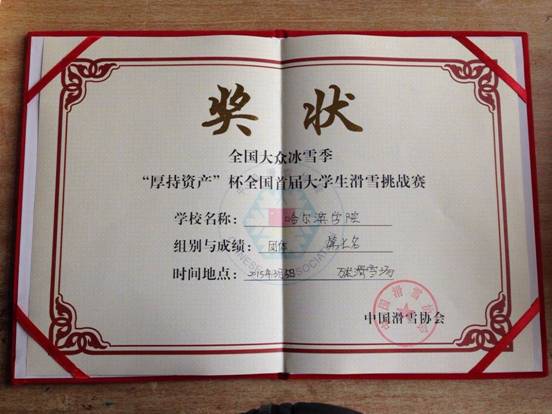 奖状
全国大众冰雪季
“厚持资产”杯全国首届大学生滑雪挑战赛
学校名称： 哈尔滨学院
组别与成绩： 团体 第七名
时间地点： 2015年3月 滑雪场
中国滑雪协会